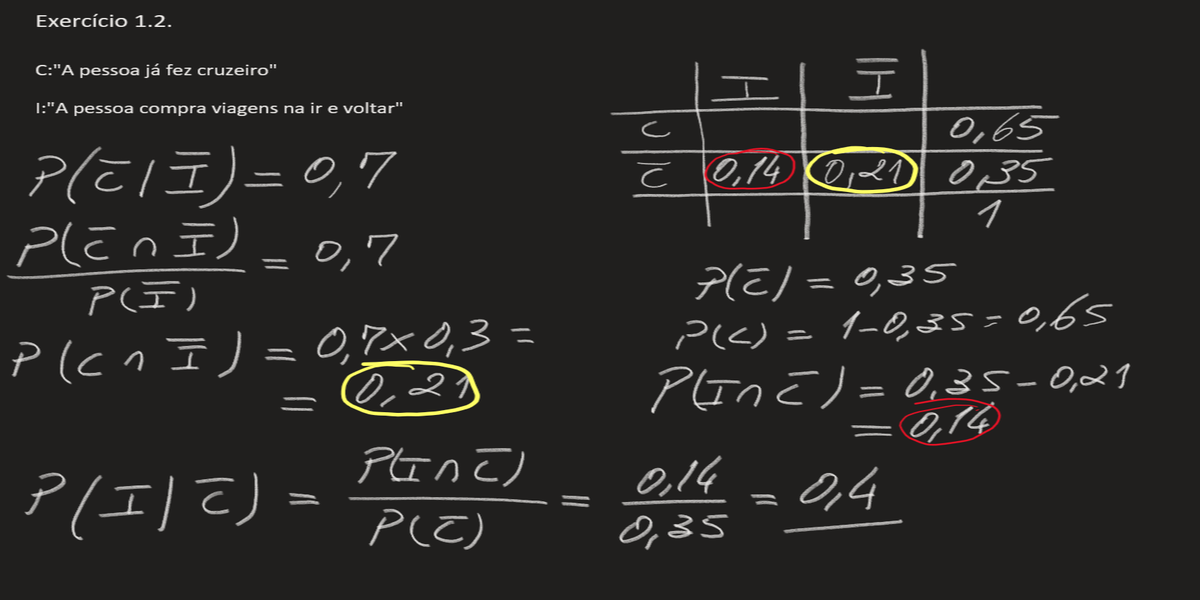 Exercício 1.2.
C:"A pessoa já fez cruzeiro"
I:"A pessoa compra viagens na ir e voltar"
P(C̅|I̅) = 0,7
P(C̅∩I̅) / P(I̅) = 0,7
P(C∩I̅) = 0,7×0,3 =
= 0,21
I I̅
C 0,65
C̅ 0,14 0,21 0,35
1
P(C̅) = 0,35
P(C) = 1-0,35 = 0,65
P(I∩C̅) = 0,35-0,21
= 0,14
P(I|C̅) = P(I∩C̅) / P(C̅) = 0,14 / 0,35 = 0,4